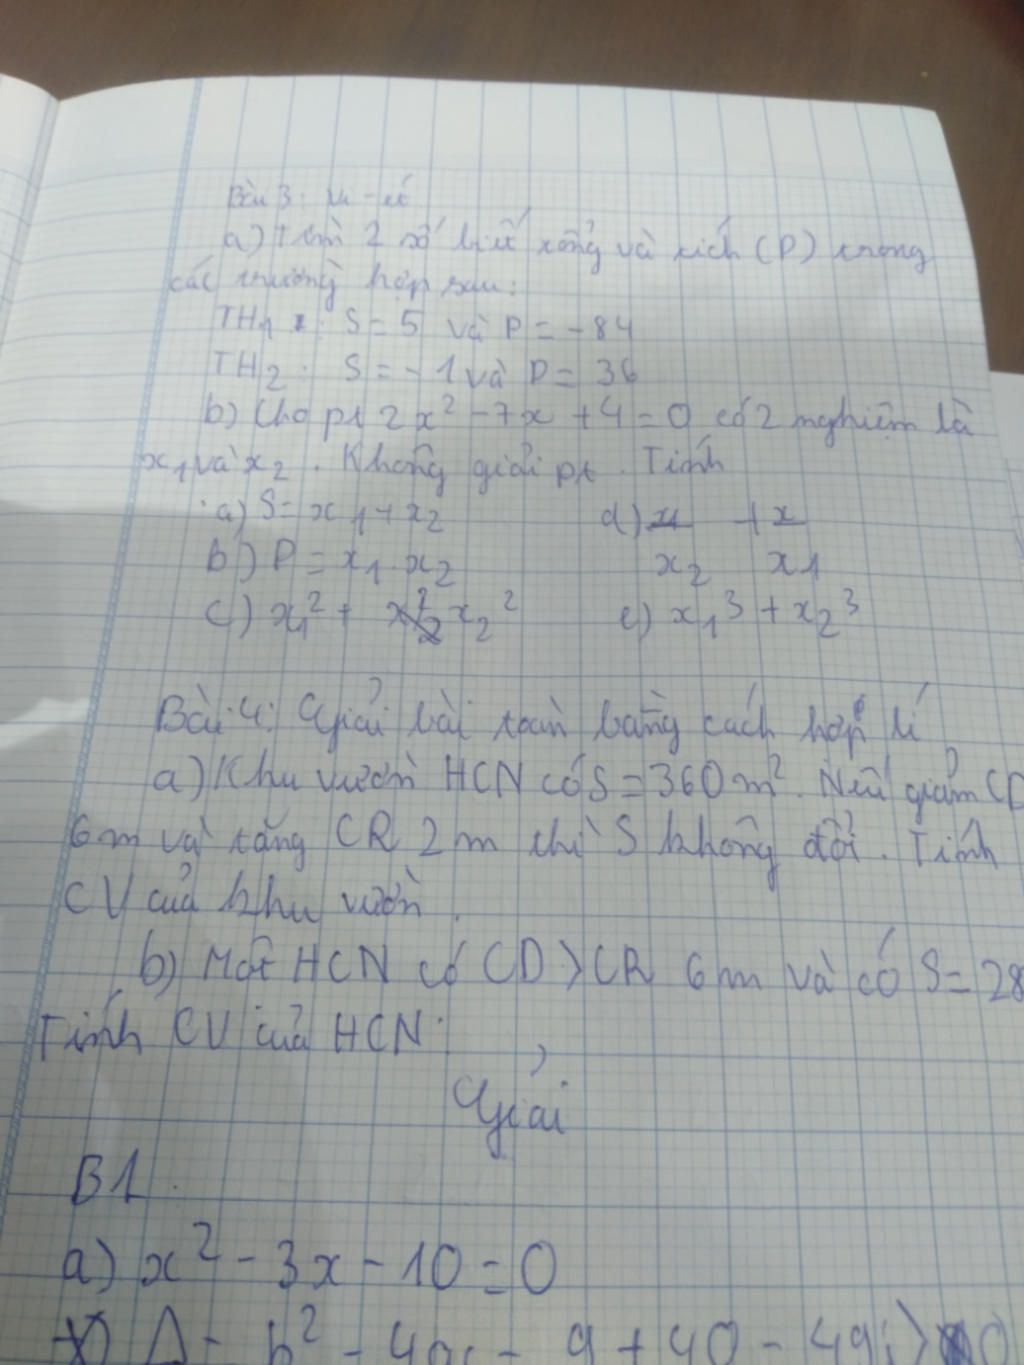 Bài 3: Vi-ét
a) Tìm 2 số biết tổng và tích (P) trong
các trường hợp sau:
TH1: S = 5 và P = -84
TH2: S = -1 và P = 36
b) Cho pt 2x² - 7x + 4 = 0 có 2 nghiệm là
x₁ và x₂. Không giải pt. Tính
a) S = x₁ + x₂ d) x1/x₂ + x/x1
b) P = x₁ x₂
c) x₁² + x₂² e) x₁³ + x₂³
Bài 4: Giải bài toán bằng cách hợp lí
a) Khu vườn HCN có S = 360m². Nếu giảm CD
6m và tăng CR 2m thì S không đổi. Tính
CV của khu vườn.
b) Một HCN có CD > CR 6m và có S = 28
Tính CV của HCN.
Giải
B1.
a) x² - 3x - 10 = 0
Δ = b² - 4ac = 9 + 40 = 49 > 0